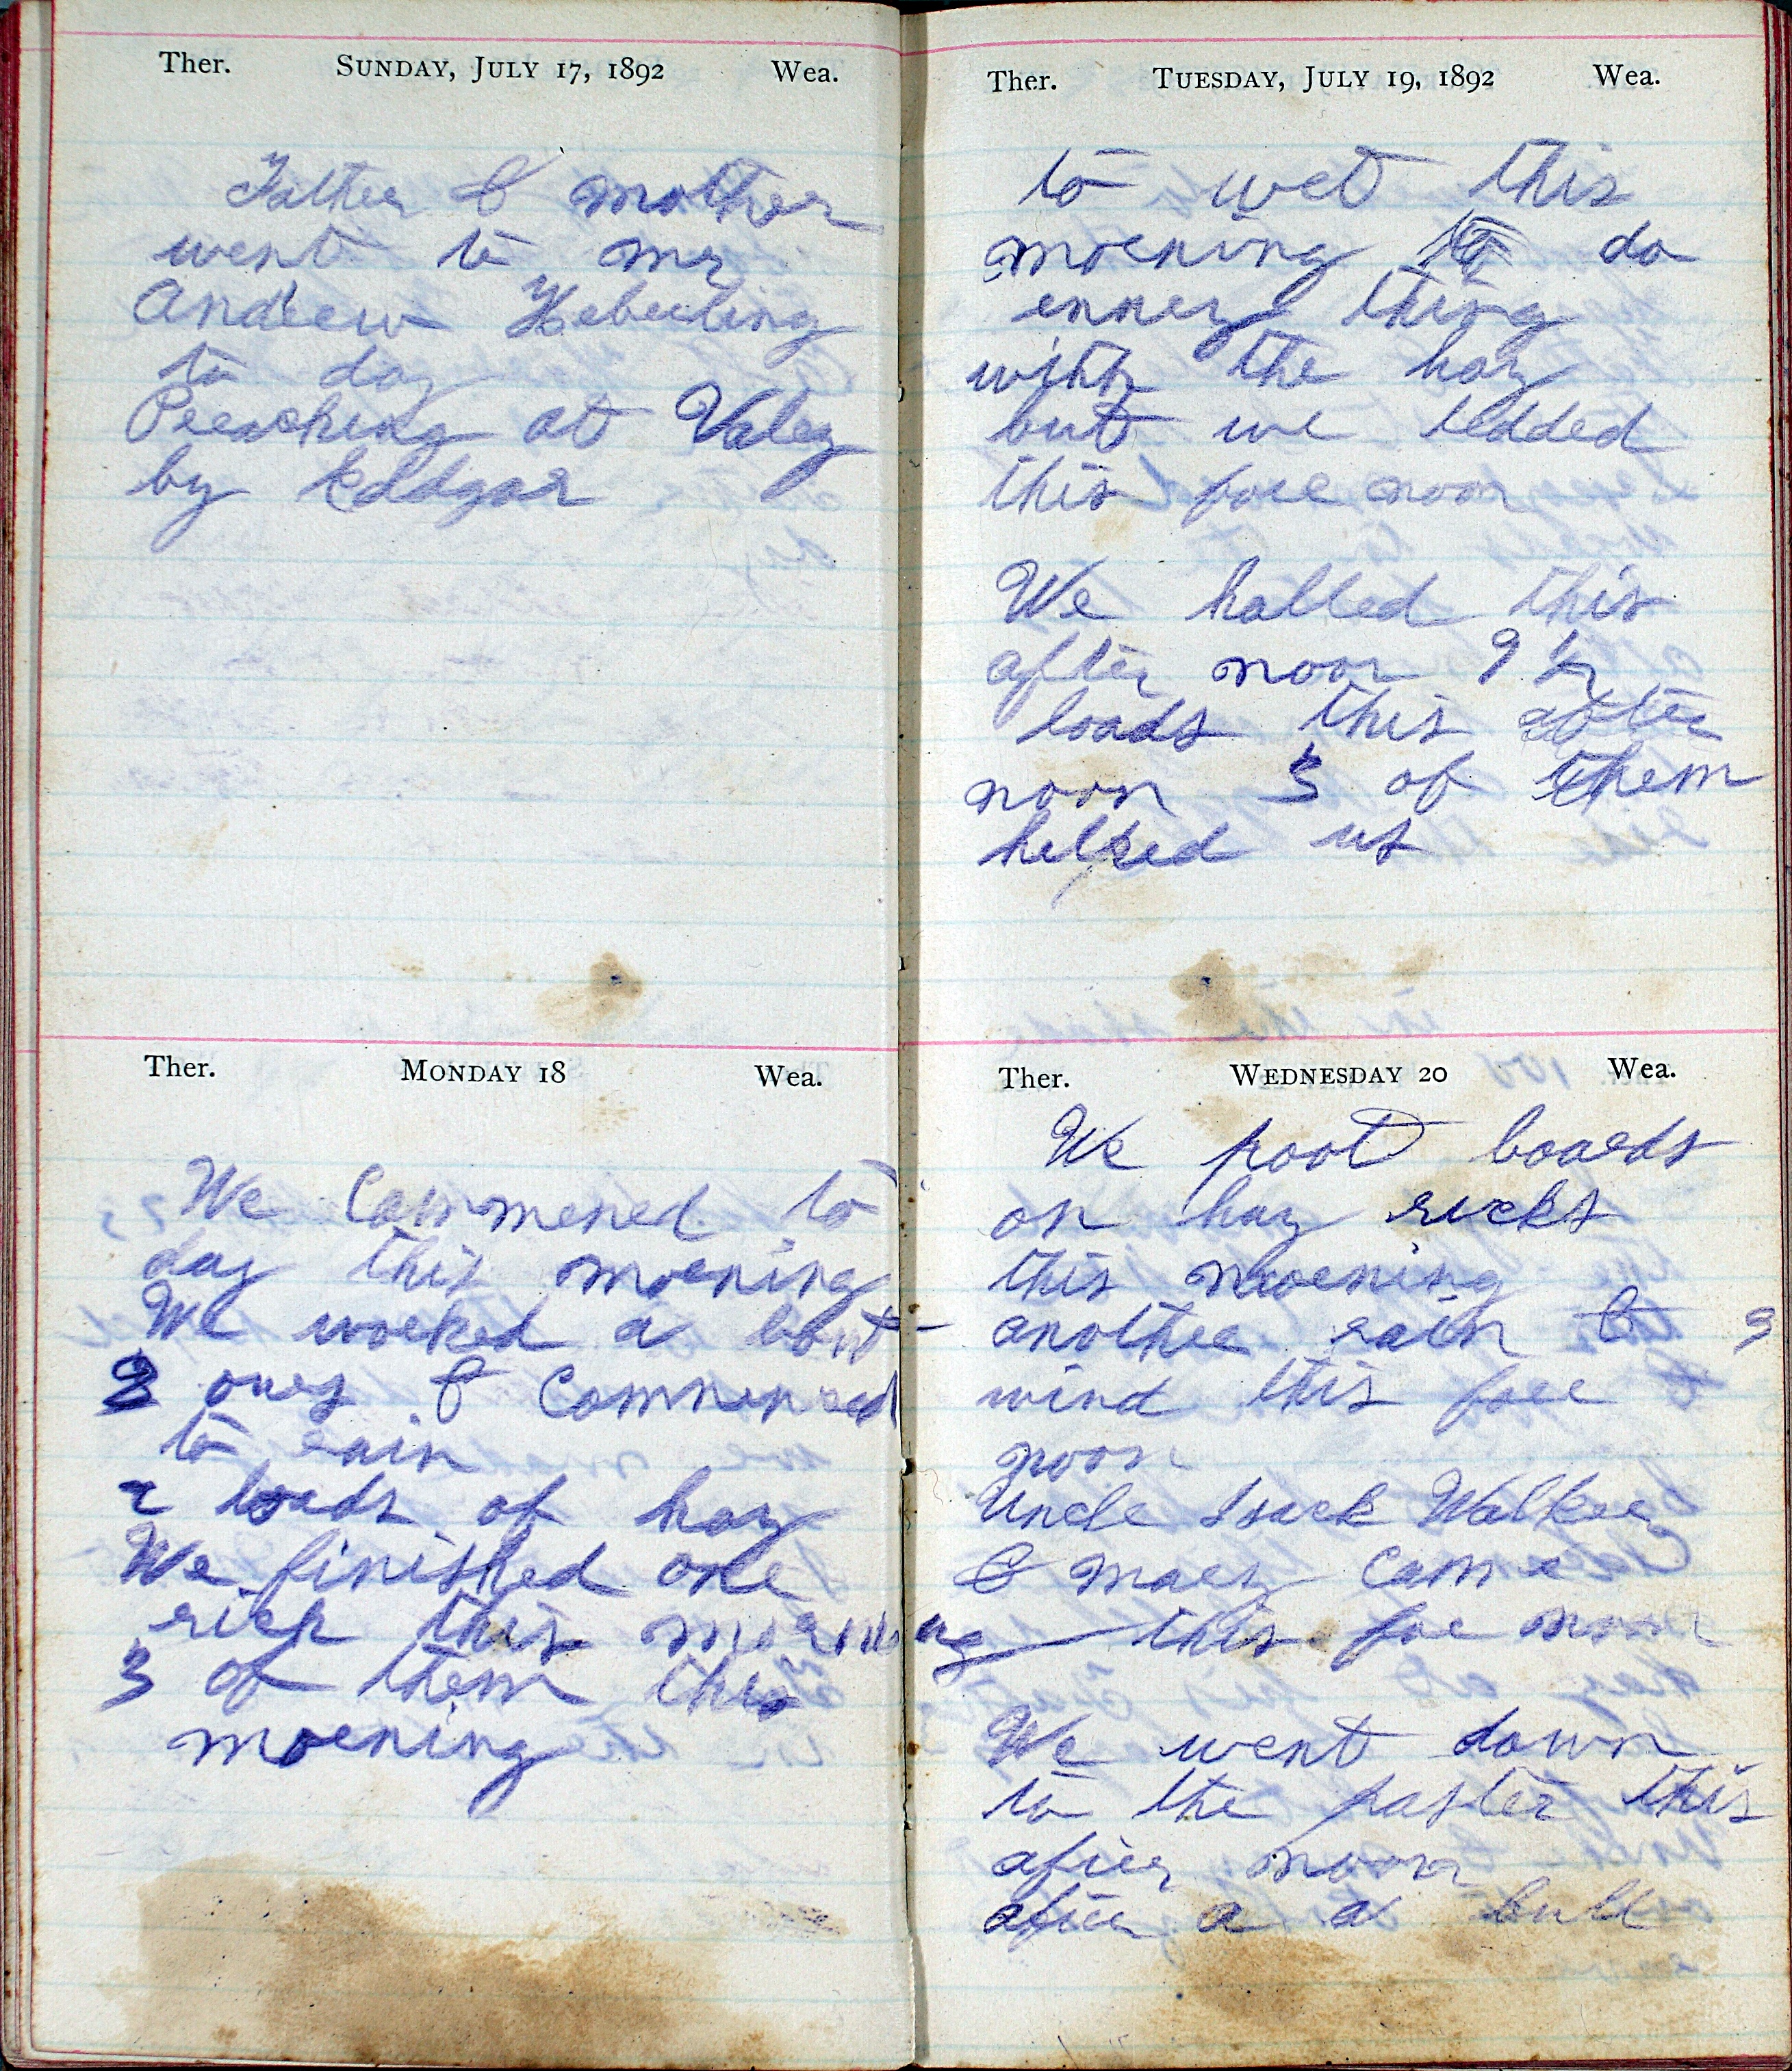 Ther. SUNDAY, JULY 17, 1892 Wea.
Father & mother
went to mr
Andrew Heberling
to day
Preaching at Valey
by Eddgar
Ther. MONDAY 18 Wea.
We Commened to
day this morning
We worked a bout
2 ours & Commenced
to rain
2 loads of hay
We finished one
rick this morning
3 of them this
morning
Ther. TUESDAY, JULY 19, 1892 Wea.
to wet this
morning to do
enney thing
with the hay
but we tedded
this fore noon
We halled this
after noon 9 1/2
loads this after
noon 3 of them
helped us
Ther. WEDNESDAY 20 Wea.
We poot boards
on hay ricks
this morning
another rain &
wind this fore
noon
Uncle Isack Walker
& mary came
this foe noon
We went down
to the paster this
after noon
after a a bull